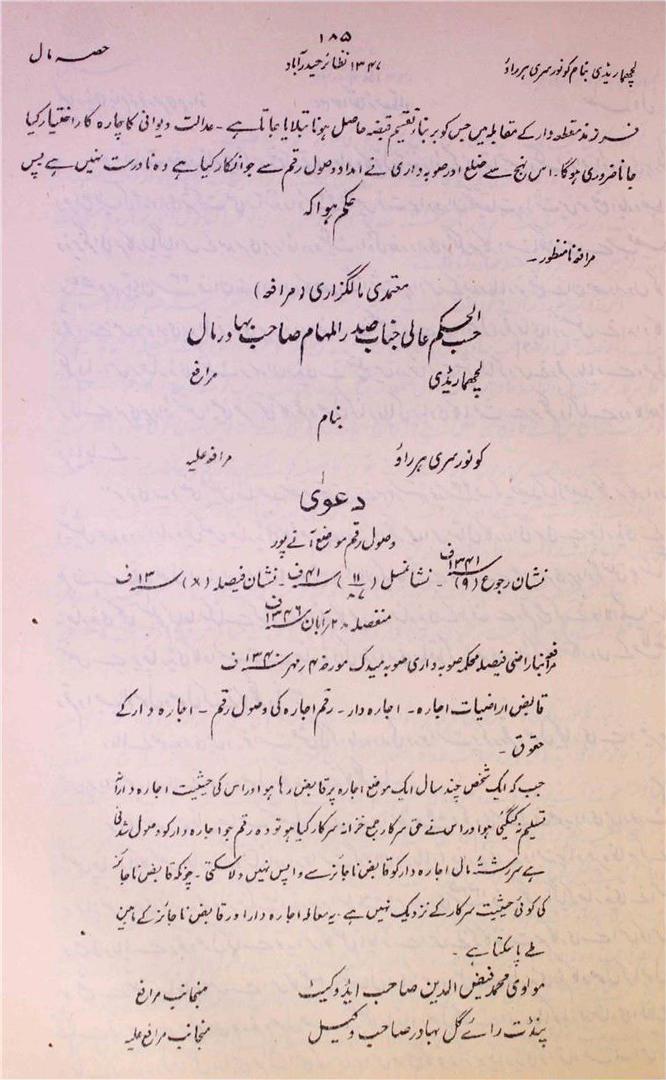 ۱۸۵
لچھماریڈی بنام کونورسری ہرراؤ ۱۳۴۷ نظائر حیدرآباد حصہ مال
فرزند مقطعہ دار کے مقابلہ میں جس کو بربناء تقسیم قبضہ حاصل ہونا بتلایا جاتا ہے۔ عدالت دیوانی کا چارہ کار اختیار کیا
جانا ضروری ہوگا۔ اس نہج سے ضلع اور صوبہ داری نے امداد وصول رقم سے جو انکار کیا ہے وہ نادرست نہیں ہے پس
حکم ہوا کہ
مرافعہ نامنظور۔
معتمدی مالگزاری (مرافعہ)
حسب الحکم عالی جناب صدر المہام صاحب بہادر مال
لچھماریڈی مرافع
بنام
کونورسری ہرراؤ مرافعہ علیہ
دعویٰ
وصول رقم موضع آنے پور
نشان رجوع (۹) ۱۳۴۱ف نشان مسل (۱۱/۸۷) ۴۱ف۔ نشان فیصلہ (۸) ۱۳ ف
منفصلہ ۲۸ آبان ۱۳۴۶ف
مرافعہ بناراضی فیصلہ محکمہ صوبہ داری صوبہ میدک مورخہ ۴ مہر ۱۳۴۰ ف
قابض اراضیات اجارہ۔ اجارہ دار۔ رقم اجارہ کی وصول رقم۔ اجارہ دار کے
حقوق۔
جب کہ ایک شخص چند سال ایک موضع اجارہ پر قابض رہا ہو اور اس کی حیثیت اجارہ دارانہ
تسلیم نہ کیگئی ہو اور اس نے حق سرکار جمع خزانہ سرکار کیا ہو تو وہ رقم جو اجارہ دار کو وصول شدنی
ہے سررشتہ مال اجارہ دار کو قابض ناجائز سے واپس نہیں دلاسکتی۔ چونکہ قابض ناجائز
کی کوئی حیثیت سرکار کے نزدیک نہیں ہے۔ یہ معاملہ اجارہ دار اور قابض ناجائز کے مابین
طے پاسکتا ہے۔
مولوی محمد فیض الدین صاحب ایڈوکیٹ منجانب مرافع
پنڈت رائے گل بہادر صاحب وکیل منجانب مرافع علیہ